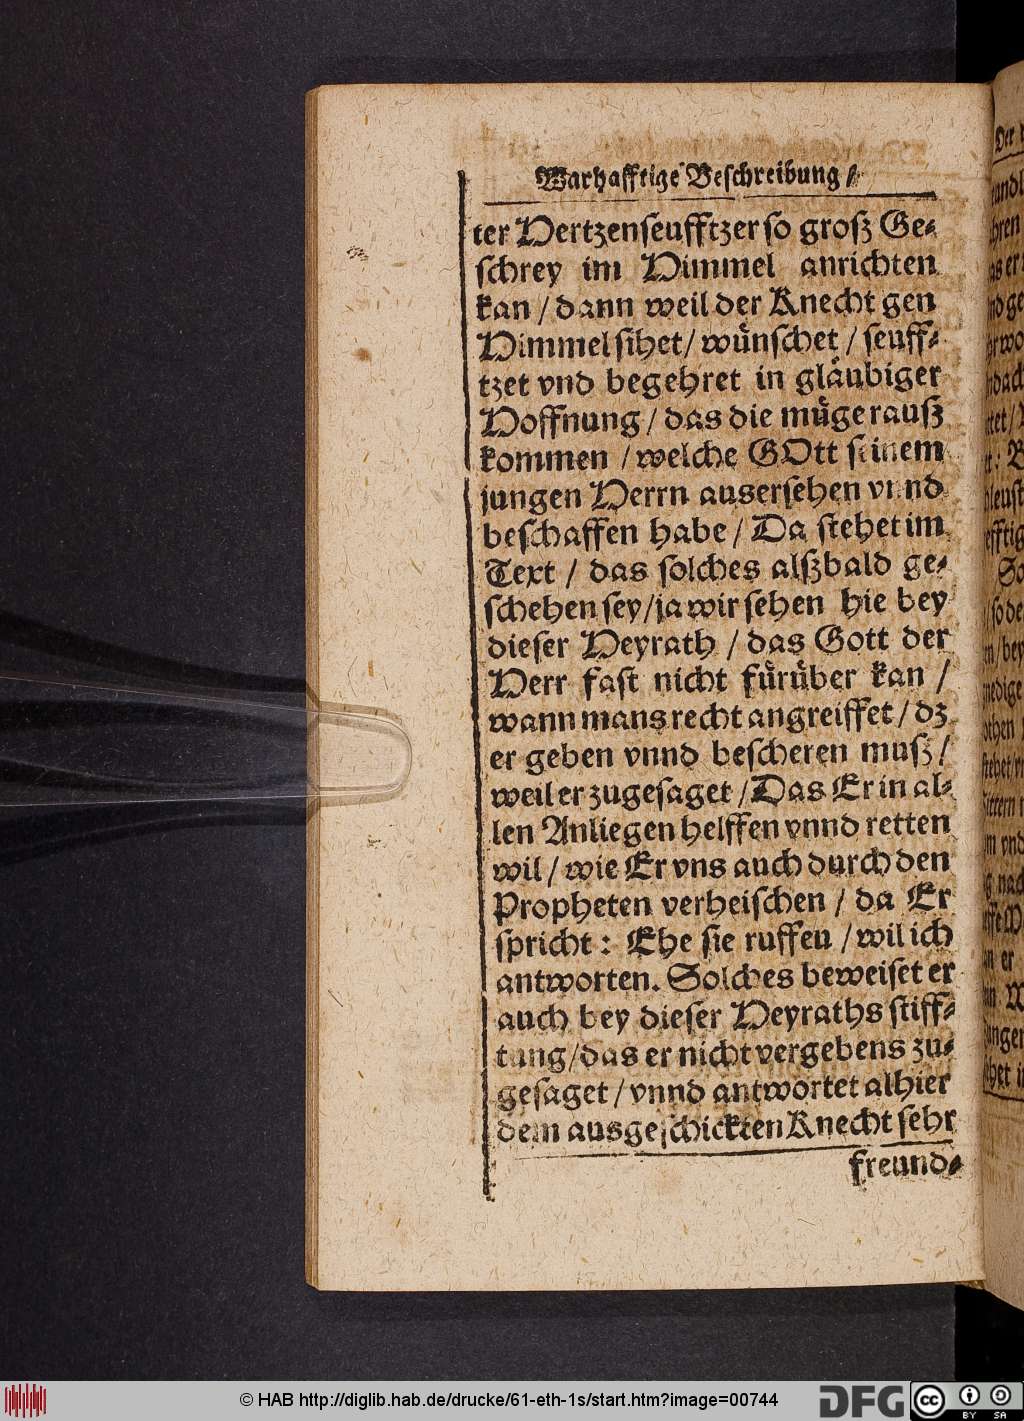 Warhafftige Beschreibung /
ter Hertzenseufftzer so grosz Ge-
schrey im Himmel anrichten
kan / dann weil der Knecht gen
Himmel sihet / wünschet / seuff-
tzet vnd begehret in gläubiger
Hoffnung / das die müge rausz
kommen / welche GOtt seinem
jungen Herrn ausersehen vnnd
beschaffen habe / Da stehet im
Text / das solches alszbald ge-
schehen sey / ja wir sehen hie bey
dieser Heyrath / das Gott der
Herr fast nicht fürüber kan /
wann mans recht angreiffet / dz
er geben vnnd bescheren musz /
weil er zugesaget / Das Er in al-
len Anliegen helffen vnnd retten
wil / wie Er vns auch durch den
Propheten verheischen / da Er
spricht : Ehe sie ruffen / wil ich
antworten. Solches beweiset er
auch bey dieser Heyraths stiff-
tung / das er nicht vergebens zu-
gesaget / vnnd antwortet alhier
dem ausgeschickten Knecht sehr
freund-
© HAB http://diglib.hab.de/drucke/61-eth-1s/start.htm?image=00744
DFG
cc
BY SA